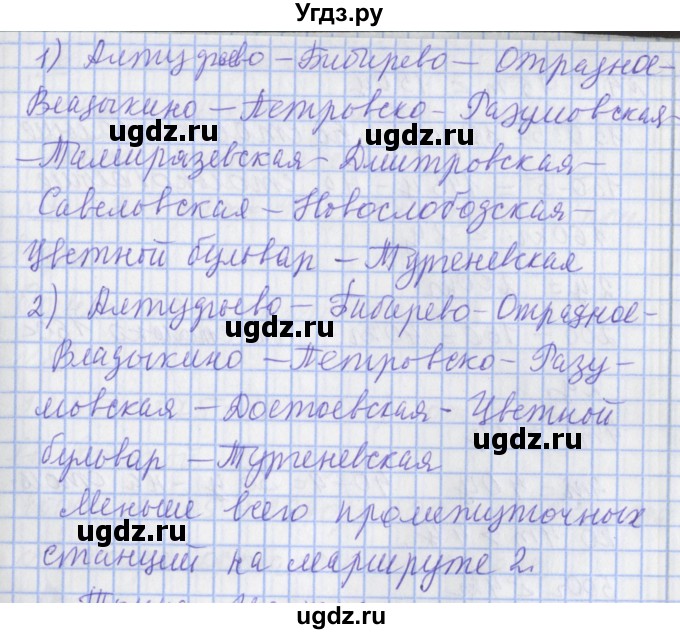 Угдз.ру
1) Алтудьево – Бибирево – Отрадное –
Владыкино – Петровско - Разумовская –
ugdz.ru ugdz.ru
– Тимирязевская – Дмитровская –
Савеловская – Новослободская –
Цветный бульвар – Тургеневская
2) Алтудьево – Бибирево – Отрадное –
ugdz.ru
Владыкино – Петровско - Разу-
мовская – Достоевская – Цветный
ugdz.ru
бульвар – Тургеневская
Меньше всего промежуточных
ugdz.ru ugdz.ru
станций на маршруте 2.
ugdz.ru